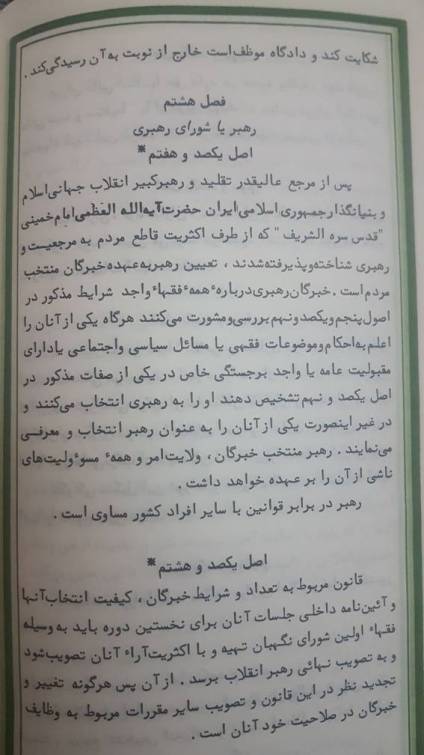 شکایت کند و دادگاه موظف است خارج از نوبت به آن رسیدگی کند .
فصل هشتم
رهبر یا شورای رهبری
اصل یکصد و هفتم*
پس از مرجع عالیقدر تقلید و رهبر کبیر انقلاب جهانی اسلام
و بنیانگذار جمهوری اسلامی ایران حضرت آیه الله العظمی امام خمینی
"قدس سره الشریف" که از طرف اکثریت قاطع مردم به مرجعیت و
رهبری شناخته و پذیرفته شدند ، تعیین رهبر به عهده خبرگان منتخب
مردم است . خبرگان رهبری درباره ٔ همه ٔ فقهاء واجد شرایط مذکور در
اصول پنجم و یکصد و نهم بررسی و مشورت می کنند هرگاه یکی از آنان را
اعلم به احکام و موضوعات فقهی یا مسائل سیاسی و اجتماعی یا دارای
مقبولیت عامه یا واجد برجستگی خاص در یکی از صفات مذکور در
اصل یکصد و نهم تشخیص دهند او را به رهبری انتخاب می کنند و
در غیر اینصورت یکی از آنان را به عنوان رهبر انتخاب و معرفی
می نمایند . رهبر منتخب خبرگان ، ولایت امر و همه ٔ مسوٴولیت های
ناشی از آن را بر عهده خواهد داشت .
رهبر در برابر قوانین با سایر افراد کشور مساوی است .
اصل یکصد و هشتم*
قانون مربوط به تعداد و شرایط خبرگان ، کیفیت انتخاب آنها
و آئین نامه داخلی جلسات آنان برای نخستین دوره باید به وسیله
فقهاء اولین شورای نگهبان تهیه و با اکثریت آراء آنان تصویب شود
و به تصویب نهائی رهبر انقلاب برسد . از آن پس هرگونه تغییر و
تجدید نظر در این قانون و تصویب سایر مقررات مربوط به وظایف
خبرگان در صلاحیت خود آنان است .